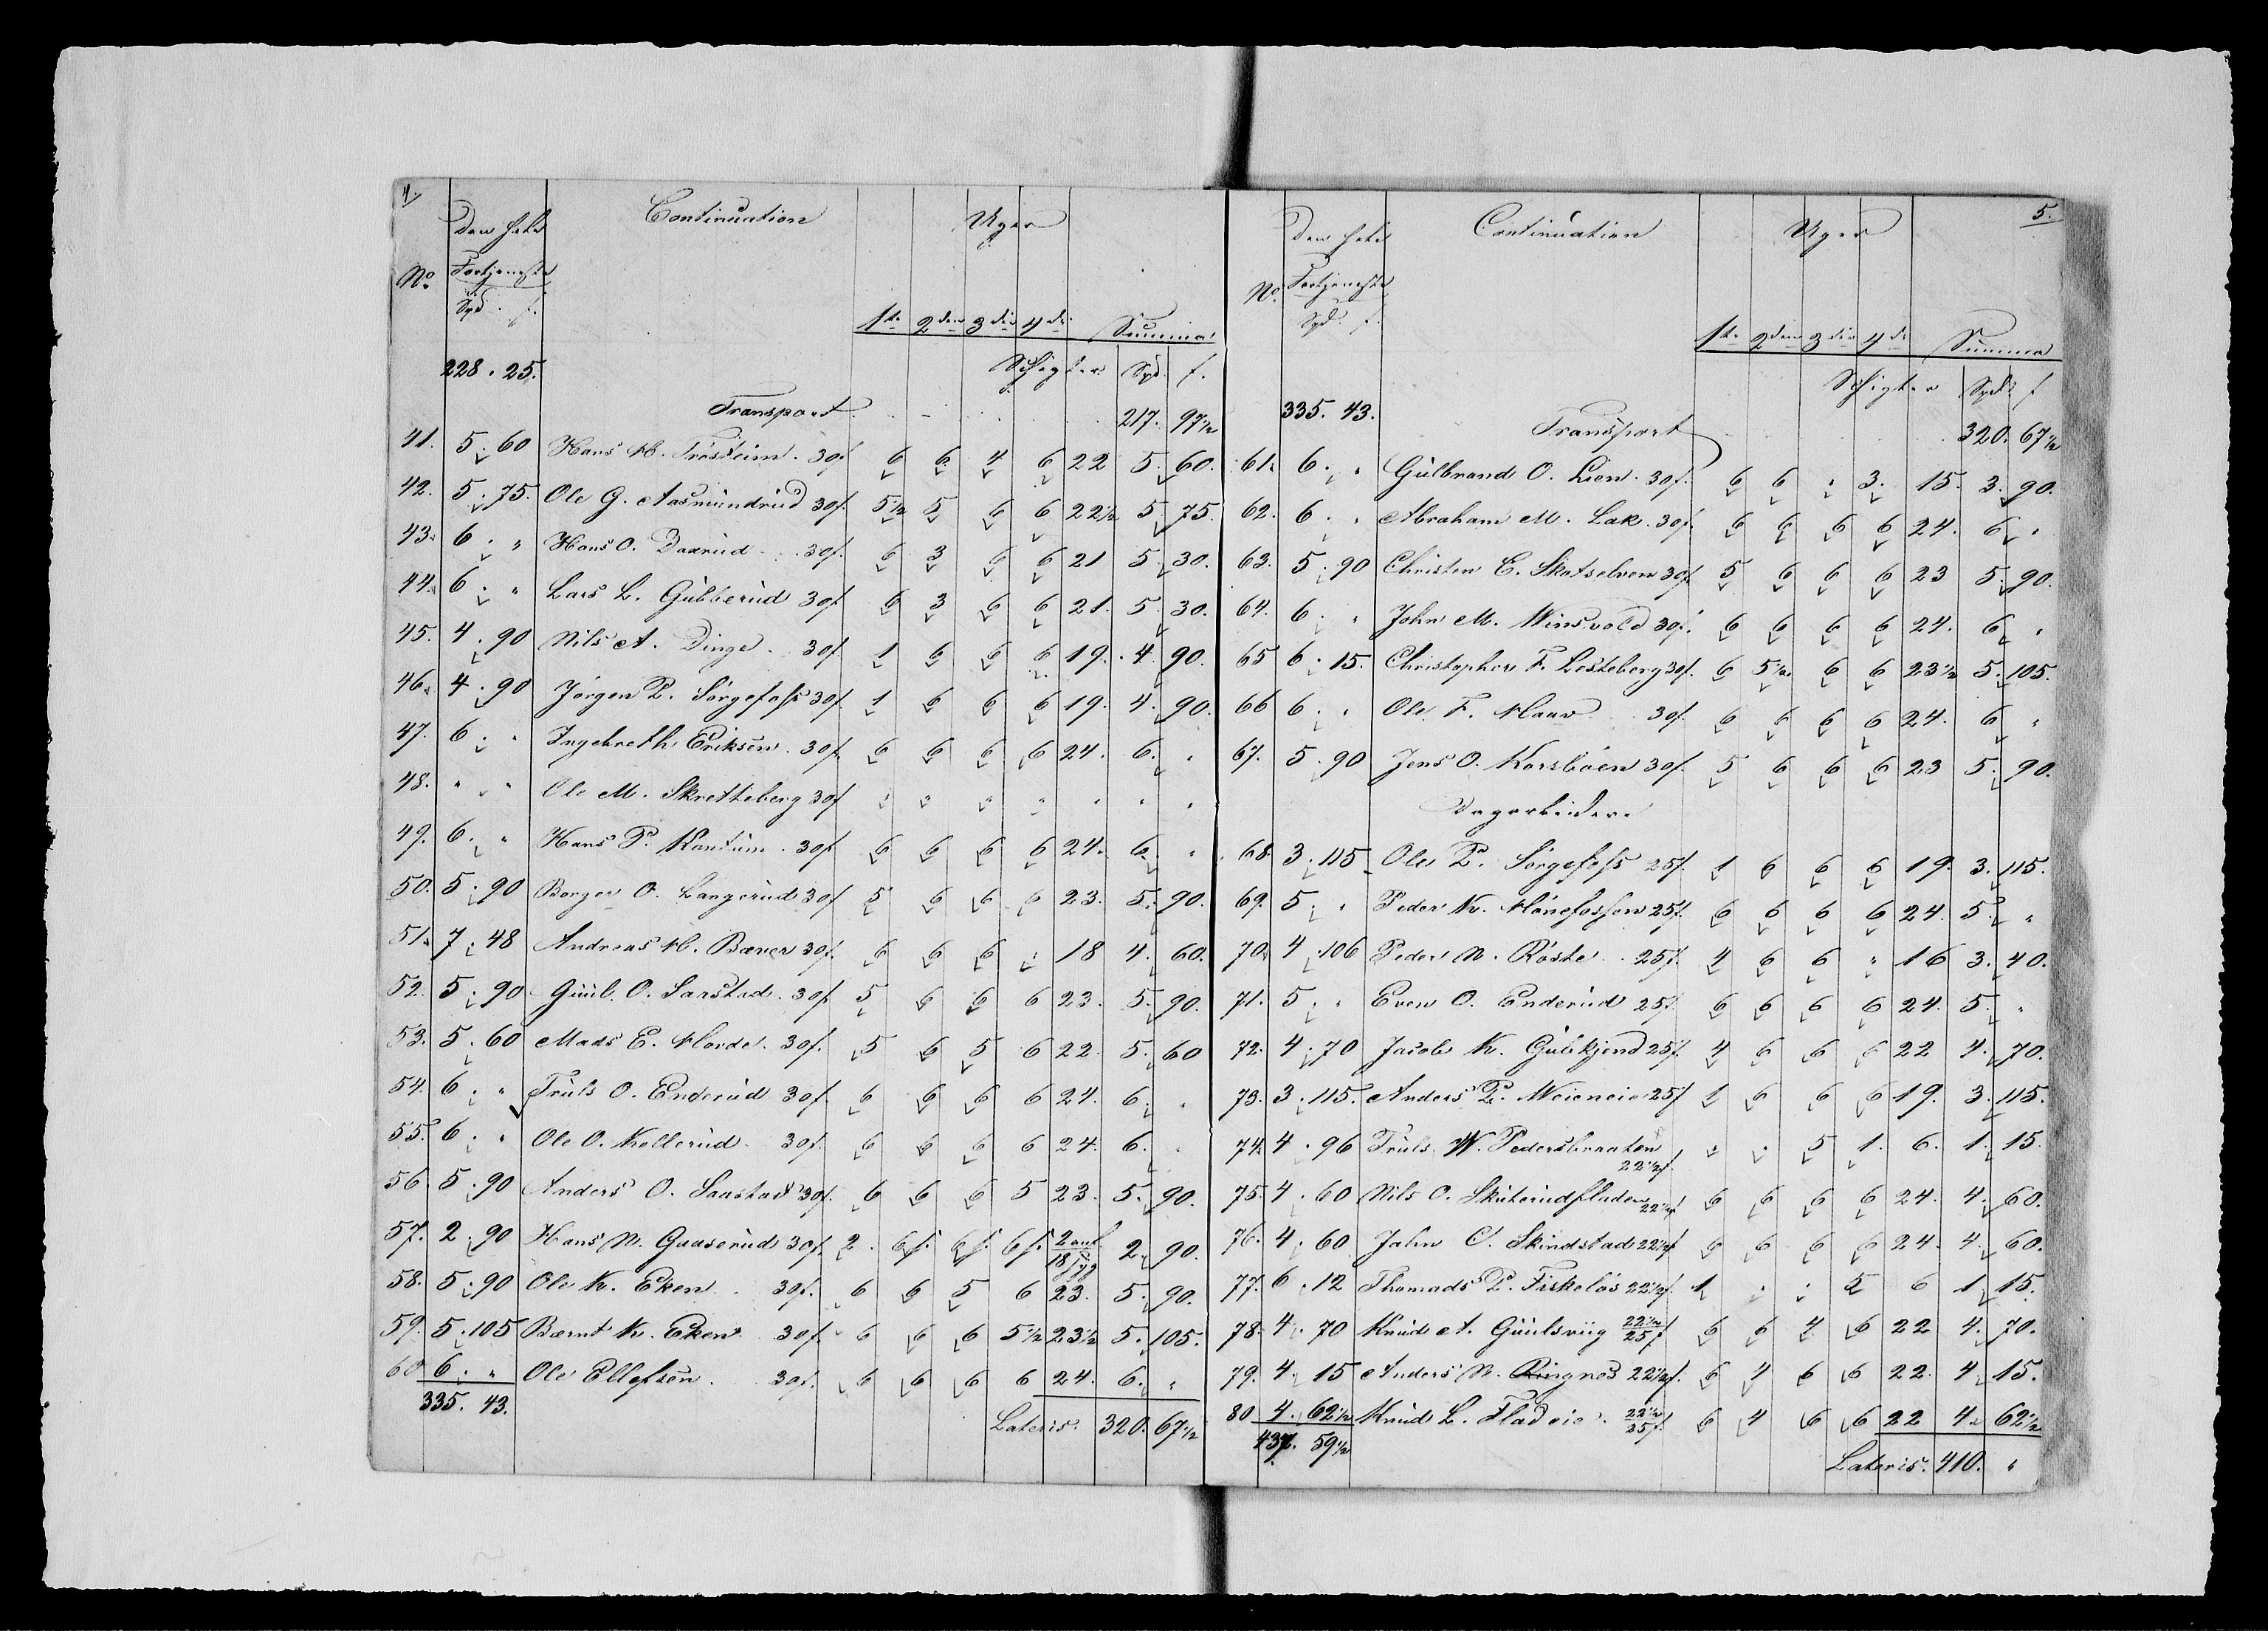 4.
Den hele Continuation Uger
No. Fortjeneste
Spd. s.
1ste 2den 3die 4de Summa
228. 25. Schigter Spd. s.
Transport 217. 97½
41. 5. 60 Hans H. Trösteim. 30s. 6 6 4 6 22 5. 60.
42. 5. 75. Ole G. Aasmundrud 30s. 5½ 5 6 6 22½ 5. 75.
43. 6. " Hans O. Daxrud 30s. 6 3 6 6 21 5. 30.
44. 6. " Lars L. Gubberud 30s. 6 3 6 6 21. 5. 30.
45. 4. 90 Nils A. Dinge 30s. 1 6 6 6 19. 4. 90.
46. 4. 90 Jörgen P. Sörgefoss 30s. 1 6 6 6 19. 4. 90.
47. 6. " Ingebreth Eriksen. 30s. 6 6 6 6 24. 6. "
48. " " Ole M. Skretteberg 30s. " " " " " " "
49. 6. " Hans P. Kantum. 30s. 6 6 6 6 24. 6. "
50. 5. 90 Borger O. Langerud 30s. 5 6 6 6 23. 5. 90.
51. 7. 48 Andreas H. Bæver 30s. 6 6 6 " 18 4. 60.
52. 5. 90 Guul. O. Saastad. 30s. 5 6 6 6 23. 5. 90.
53. 5. 60 Mads E. Horde. 30s. 5 6 5 6 22. 5. 60
54. 6. " Truls O. Enderud 30s. 6 6 6 6 24. 6. "
55. 6. " Ole O. Kollerud 30s. 6 6 6 6 24. 6. "
56 5. 90 Anders O. Saastad 30s. 6 6 6 5 23. 5. 90.
57. 2. 90 Hans N. Gaaserud 30s. 2. 6s. 6s. 6s. 2 18 2. 90.
58. 5. 90 Ole K. Eken 30s. 6 6 5 6 23. 5. 90.
59. 5. 105 Bærnt K. Eken 30s. 6 6 6 5½ 23½ 5. 105.
60 6. " Ole Ellefsen. 30s. 6 6 6 6 24. 6. "
335. 43. Lateris. 320. 67½
5.
Den hele Continuation Uger
No. Fortjeneste
Spd. s.
1ste 2den 3die 4de Summa
Schigter Spd. s
335. 43. Transport 320. 67½
61. 6. " Gulbrand O. Lien. 30s. 6 6 " 3. 15. 3. 90.
62. 6. " Abraham M. Lak. 30s. 6 6 6 6 24. 6 "
63. 5. 90 Christen E. Skotselven 30s. 5 6 6 6 23 5. 90.
64. 6. " John M. Winsvold 30s. 6 6 6 6 24. 6 "
65 6. 15. Christopher F. Lesteberg 30s. 6 5½ 6 6 23½ 5. 105.
66 6. " Ole F. Haav 30s. 6 6 6 6 24. 6 "
67. 5. 90 Jens O. Korsböen 30s. 5 6 6 6 23 5. 90.
Dagarbeidere
68. 3. 115 Ole P. Sörgefoss 25s. 1 6 6 6 19. 3. 115.
69. 5. " Peder K. Hönefossen 25s. 6 6 6 6 24. 5. "
70. 4. 106 Peder N. Röste 25s. 4 6 6 " 16 3. 40.
71. 5. " Even O. Enderud 25s. 6 6 6 6 24. 5. "
72. 4. 70 Jacob K. Gulskjend 25s. 4 6 6 6 22 4. 70.
73. 3. 115. Anders P. Weieneie 25s. 1 6 6 6 19. 3. 115.
74. 4. 96 Truls W. Pedersbraaten " " 5 1. 6. 1. 15.
22½s.
75. 4. 60 Nils O. Skuterudfladen 22½s. 6 6 6 6 24. 4. 60.
76. 4. 60 John C. Skindstad 22½s 6 6 6 6 24. 4. 60.
77. 6. 12 Thomads P. Fiskelös 22½s. 1 " " 5 6 1. 15.
78. 4. 70 Knud A. Guulsviig 22½ 25s 6 6 4 6 22 4. 70.
79. 4. 15 Anders N. Ringnes 22½s. 6 4 6 6 22. 4. 15.
80 4. 62½ Knud L. Fladeie. 22½ 25s. 6 4 6 6 22 4. 62½
437. 59½ Lateris. 410. "